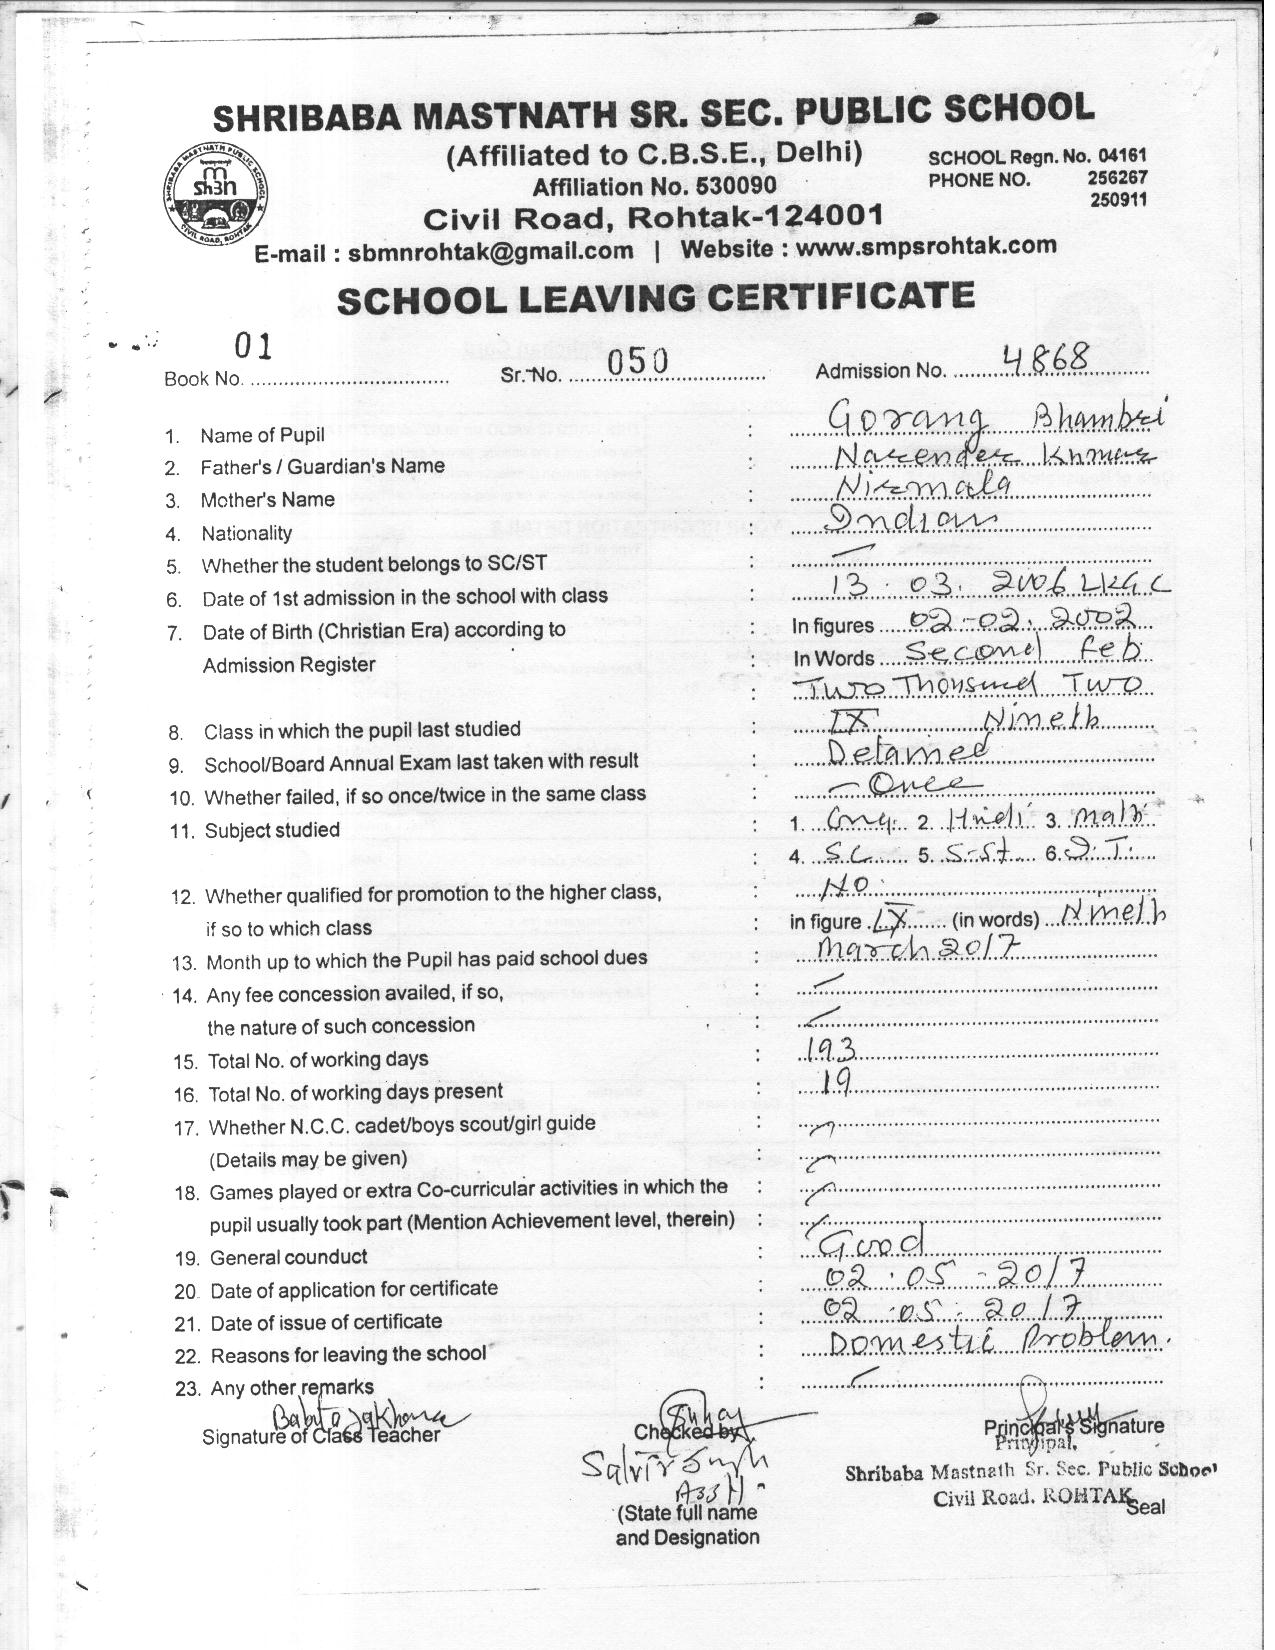 SHRIBABA MASTNATH SR. SEC. PUBLIC SCHOOL
(Affiliated to C.B.S.E., Delhi)
SCHOOL Regn. No. 04161
Affiliation No. 530090
PHONE NO. 256267
250911
Civil Road, Rohtak-124001
E-mail : sbmnrohtak@gmail.com | Website : www.smpsrohtak.com
SHRIBABA MASTNATH PUBLIC SCHOOL
CIVIL ROAD, ROHTAK
SCHOOL LEAVING CERTIFICATE
Book No. 01 Sr. No. 050 Admission No. 4868
1. Name of Pupil : Gorang Bhambri
2. Father's / Guardian's Name : Narender Kumar
3. Mother's Name : Nirmala
4. Nationality : Indian
5. Whether the student belongs to SC/ST : —
6. Date of 1st admission in the school with class : 13.03.2006 LKG C
7. Date of Birth (Christian Era) according to : In figures 02-02.2002
Admission Register : In Words Second Feb
: Two Thousand Two
8. Class in which the pupil last studied : IX Nineth
9. School/Board Annual Exam last taken with result : Detained
10. Whether failed, if so once/twice in the same class : — Once
11. Subject studied : 1. Eng. 2. Hindi 3. Math
: 4. SC. 5. S.St. 6. I.T.
12. Whether qualified for promotion to the higher class, : No.
if so to which class : in figure IX (in words) Nineth
13. Month up to which the Pupil has paid school dues : March 2017
14. Any fee concession availed, if so, : —
the nature of such concession : —
15. Total No. of working days : 193
16. Total No. of working days present : 19
17. Whether N.C.C. cadet/boys scout/girl guide : —
(Details may be given) : —
18. Games played or extra Co-curricular activities in which the : —
pupil usually took part (Mention Achievement level, therein) : —
19. General counduct : Good
20. Date of application for certificate : 02.05-2017
21. Date of issue of certificate : 02.05.2017
22. Reasons for leaving the school : Domestic Problem.
23. Any other remarks : —
Signature of Class Teacher
Checked by
Principal's Signature
Principal,
Shribaba Mastnath Sr. Sec. Public School
Civil Road. ROHTAK
Seal
(State full name
and Designation